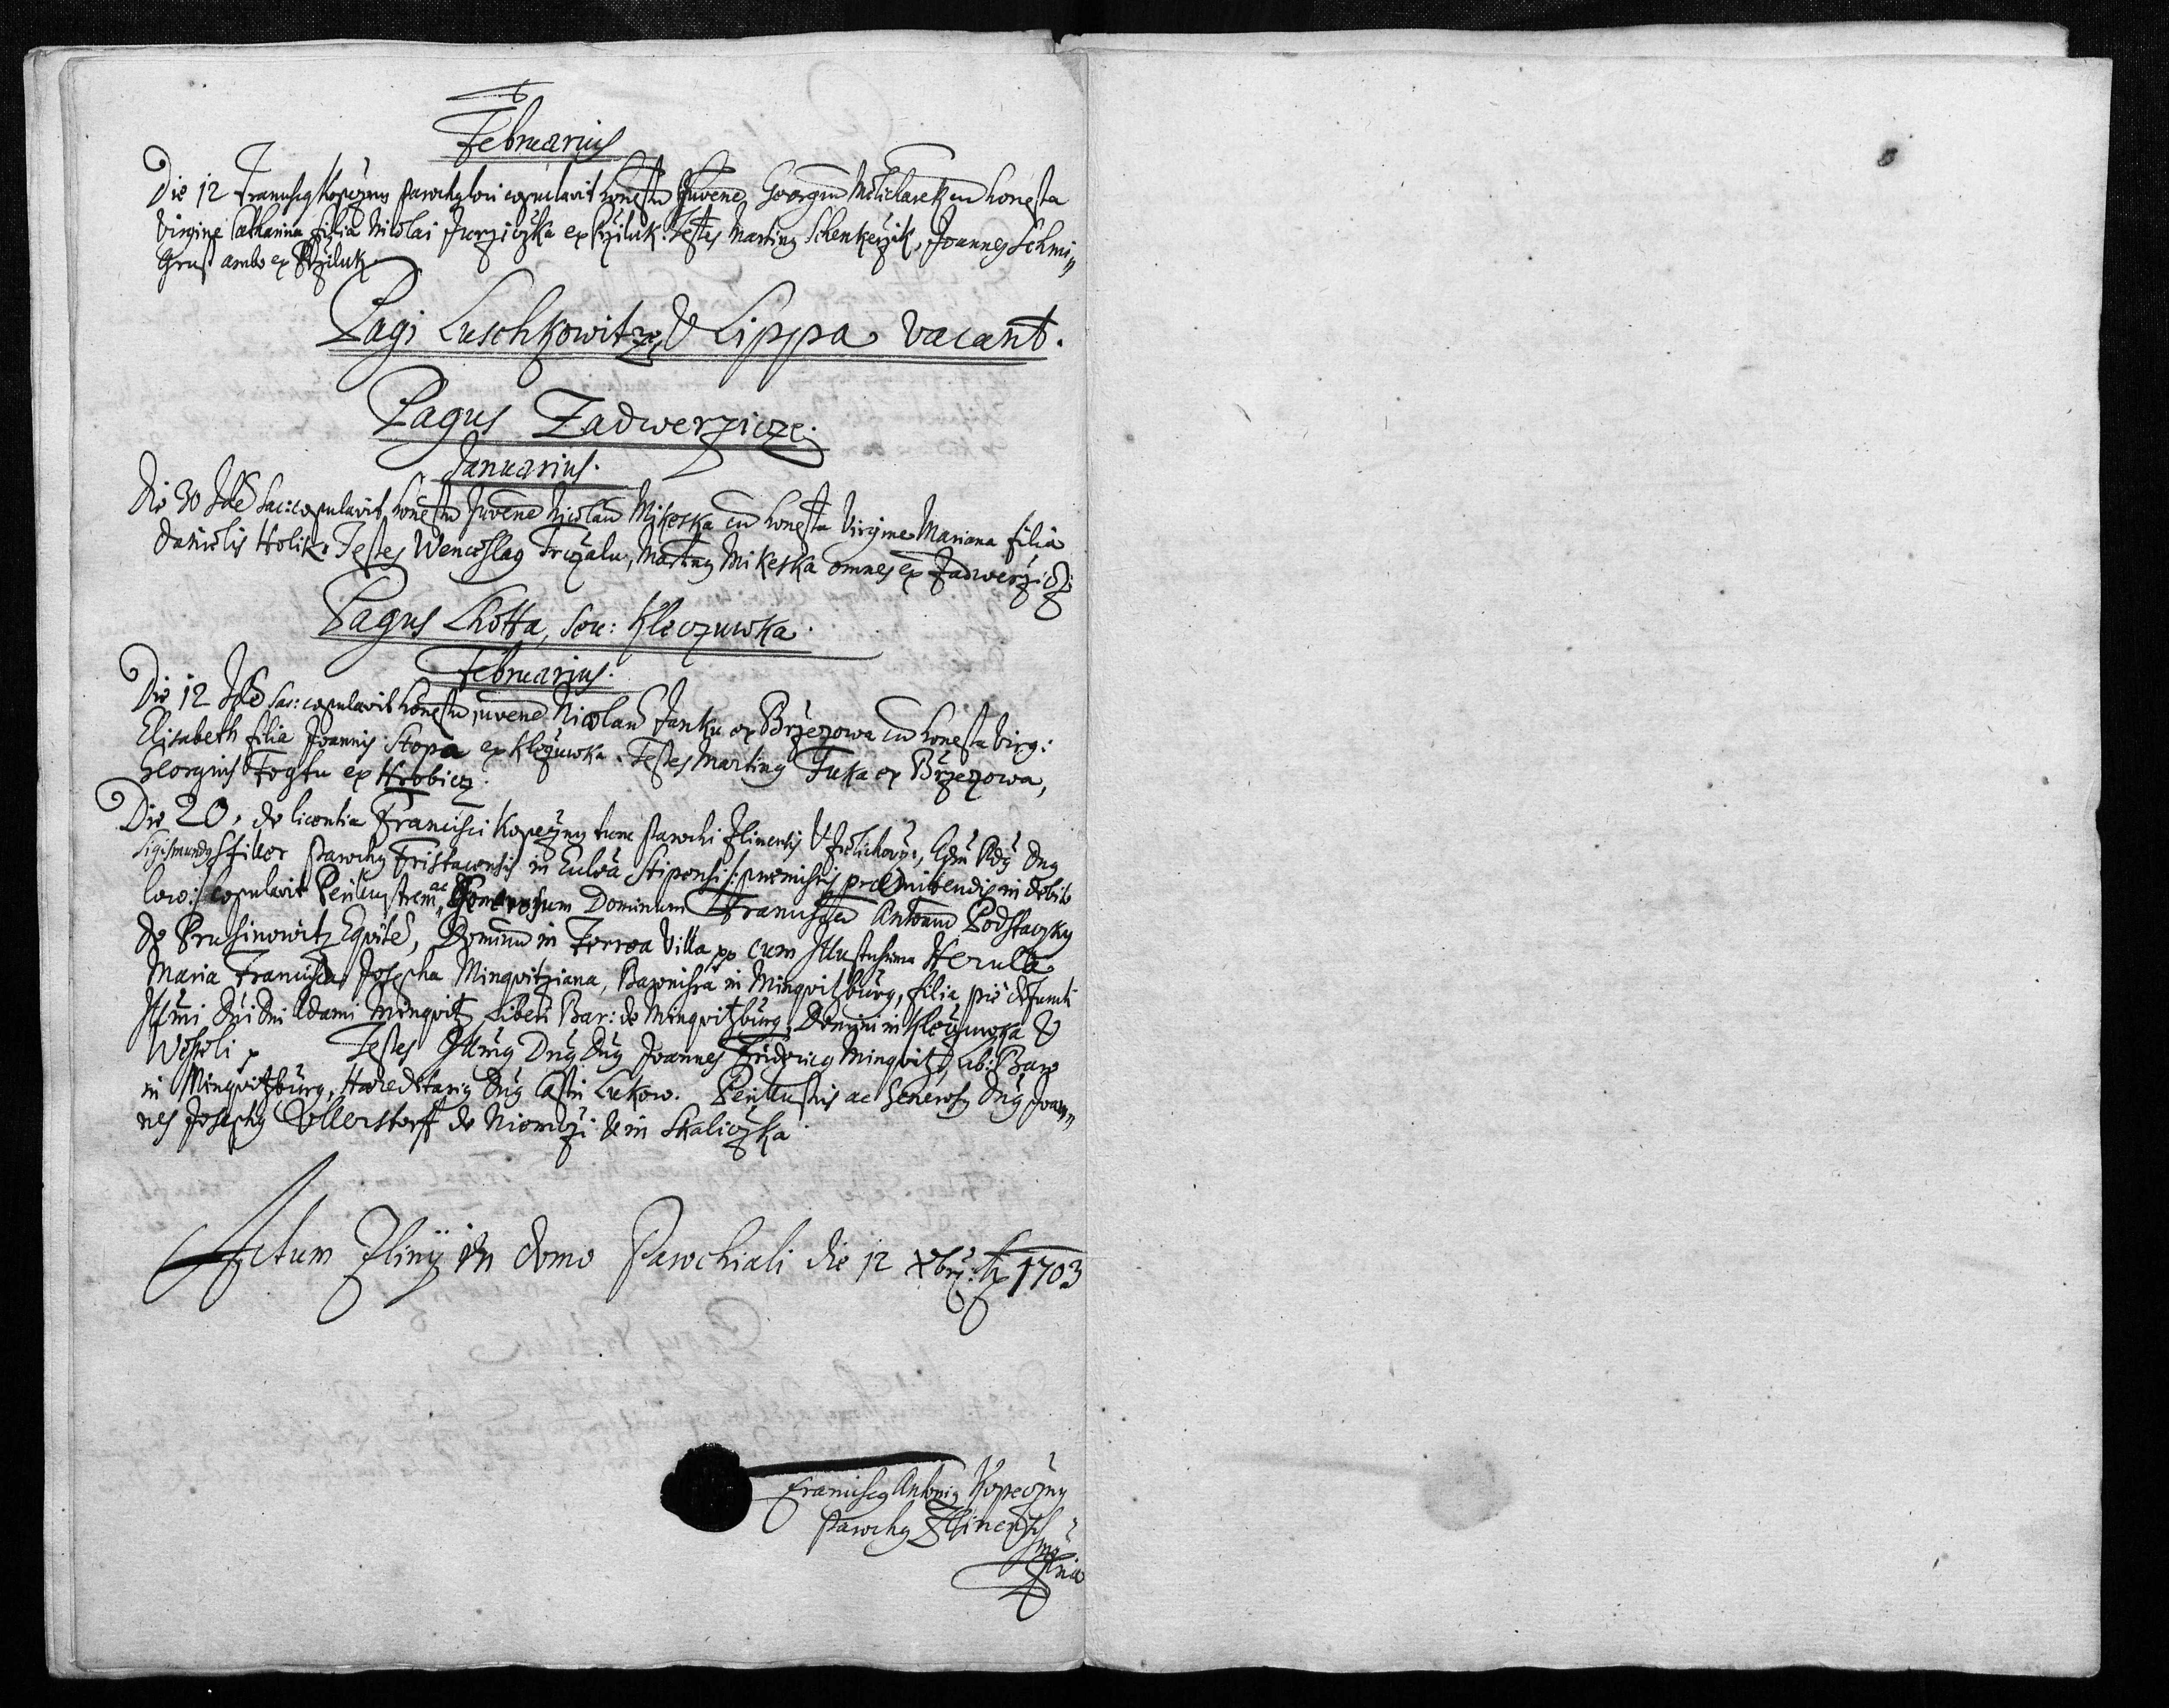 Februarius
Die 12 Franciscq Kopeczny Parochq loci copulavit honestū Juvenē Georgiū Miklasek cū honesta
Virgine Catharina filia Nicolai Jurziczka ex Przíluk: Testes Martinq Schenkerzik, Joannes Schmi„
Grust ambo ex Przíluk.
Pagi Luschkowitze, & Lippa vacant.
Pagus Zadwerzicze.
Januarius.
Die 30 Idē Sac: copulavit honestū Juvenē Nicolaū Mikeska cū honesta Virgine Mariana filia
Danielis Holik. Testes Wenceslaq Trczalu, Martinq Mikeska omnes ex Zadwerzicz:
Pagus Lhotta, seu: Kleczuwka.
Februarius.
Die 12 Idē Sac: copulavit honestū juvenē Nicolaū Janku ex Brzezowa cū honesta Virg:
Elisabeth filia Joannis Stopa ex Kleczuwka. Testes Martinq Fuka ex Brzezowa,
Georgius Fogtu ex Hrobicz.
Die 20, de licentia Francisci Kopeczny tunc Parochi Zlinensis &, Adm Rdq Dnq
Sigismundq Stiller Parochq Fristacensis in Eccl̄ia Stipensi: praemissis praemittendis in debito
loco: copulavit Perillustrem, ac Generosum Dominum Franciscū Antoniū Podstaczky
de Prusinowitz Equitē, Dominū in Ferrea Villa pp cum Illustrissima Herula
Maria Francisca Josepha Minqvitziana, Baronissa in Minqvitzburg, filia piè defuncti
Illmi Dni Dni Adami Minqvitz Liberi Bar: de Minqvitzburg, Domini in Kleczuwka &
Wesseli p Testes Illmq Dnq Dnq Joannes Fridericq Minqvitz, Lib: Baro
in Minqvitzburg, Haereditariq Dnq Castri Lukow. Perillustris ac Generosq Dnq Joan„
nes Josephq Vllerstorff de Niemczi & in Skaliczka.
Actum Zlinij in domo Parochiali die 12 Xbris 1703
Franciscq Antoniq Kopeczny
Parochq Zlinensis
mpria